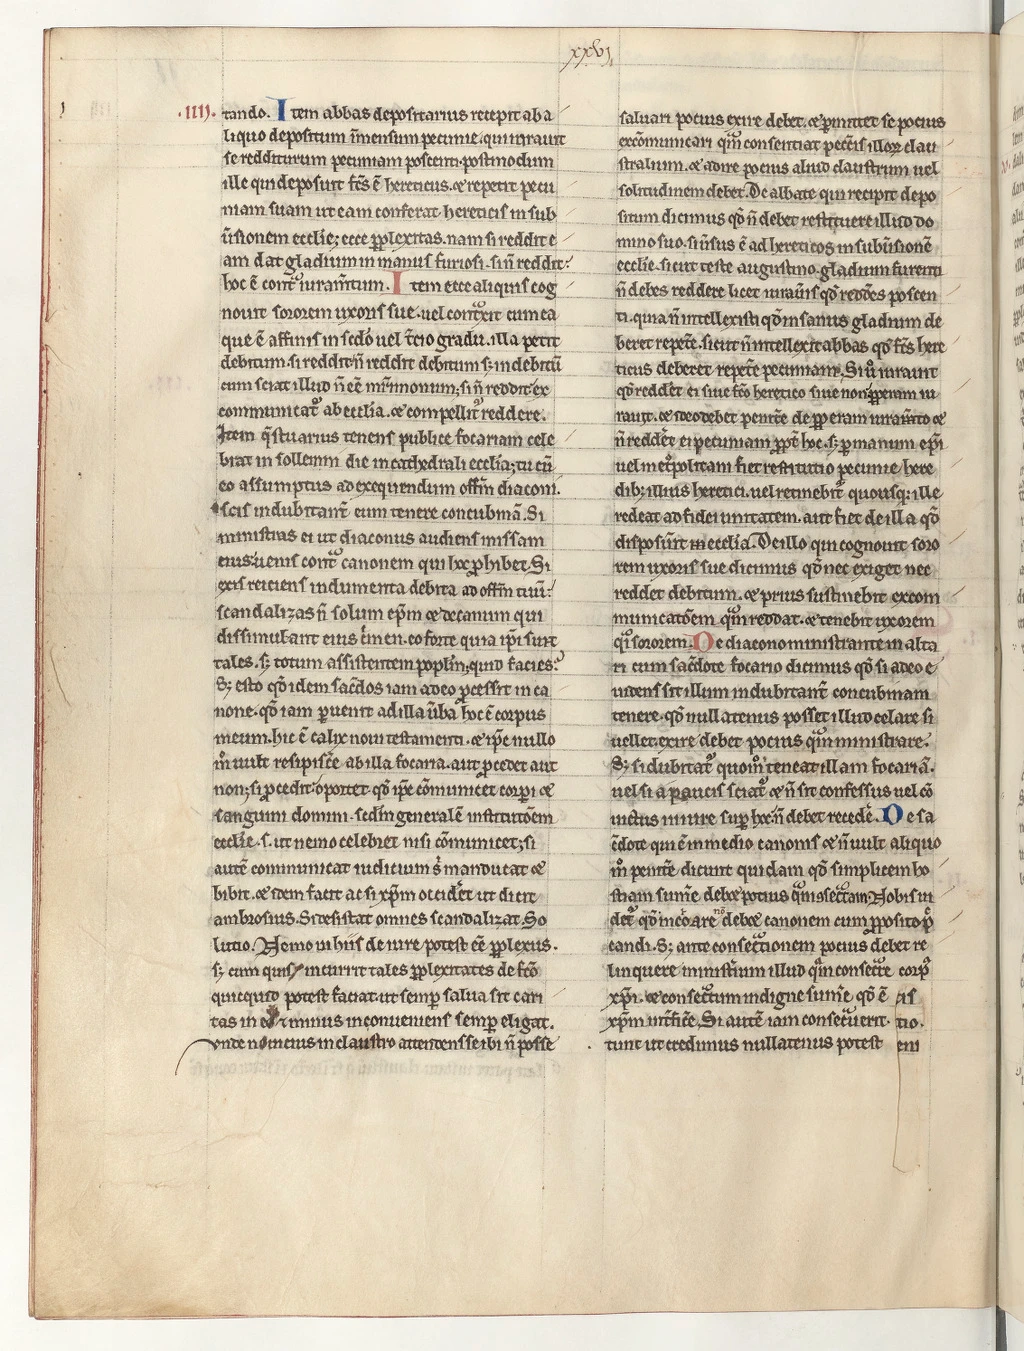 xxvi.
.iiii. tando. Item abbas depositarius recepit ab a
liquo depositum īmensum pecunie. qui iurauit
se redditurum pecuniam poscenti. postmodum
ille qui deposuit fc̄s ē hereticus. ⁊ repetit pecu
niam suam ut eam conferat hereticis in sub
ūsionem ecclie; ecce ꝑplexitas. nam si reddit e
am dat gladium in manus furiosi. si n̄ reddit:
hoc ē contͣ iuram̄tum. Item ecce aliquis cog
nouit sororem uxoris sue. uel contͣxit cum ea
que ē affinis in sc̄do uel t̄cio gradu. illa petit
debitum. si reddit. n̄ reddit debitum s; indebitū
cum sciat illud n̄ eē mr̄imonium; si n̄ reddit ex
communicatͬ ab ecclia. ⁊ compellitͬ reddere.
Item q̄stuarius tenens publice focariam cele
brat in sollemni die in cathedrali ecclia; tu cū
eo assumptus ad exequendum offm̄ diaconi.
scis indubitant̄ eum tenere concubinā. Si
ministras ei ut diaconus audiens missam
eius: uenis contͣ canonem qui hoc ꝓhibet. Si
exis reiciens indumenta debita ad offm̄ tuū:
scandalizas n̄ solum ep̄m ⁊ decanum qui
dissimulant eius c̄men. eo forte quia ip̄i sunt
tales. s; totum assistentem popl̄m; quid facies?
S; esto qd̄ idem sac̄dos iam adeo ꝓcessit in ca
none. qd̄ iam ꝑuenit ad illa ūba hoc ē corpus
meum. hic ē calix noui testamenti. ⁊ ip̄e nullo
m̊ uult resipisc̄e ab illa focaria. aut ꝓcedet aut
non; si ꝓcedit: oportet qd̄ ip̄e cōmunicet corp̄i ⁊
sanguini domini. sc̄dm generalē institutōem
ecclie. s. ut nemo celebret nisi cōmunicet; si
autē communicat iudicium s̄ manducat ⁊
bibit. ⁊ idem facit ac si xp̄m occidet̄ ut dicit
ambrosius. Si desistat omnes scandalizat. So
lutio. Nemo in hiis de iure potest eē ꝑplexus.
s; cum quis incurrit tales ꝑplexitates de fc̄o
quicquid potest faciat. ut semꝑ salua sit cari
tas in minus inconueniens semꝑ eligat.
vnde nouicius in claustro attendens se ibi n̄ posse
saluari pocius exire debet. ⁊ ꝑmittet se pocius
excōmunicari qͣm consentiat pecc̄is illoꝝ clau
stralium. ⁊ adire pocius aliud claustrum uel
solitudinem debet. De abbate qui recipit depo
situm dicimus qd̄ n̄ debet restituere illud do
mino suo. si ūsus ē ad hereticos in subūsionē
ecclie. sicut teste augustino. gladium furenti
n̄ debes reddere licet iurauīs qd̄ reddēs poscen
ti. quia n̄ intellexisti qd̄ insanus gladium de
beret repet̄e. sicut n̄ intellexit abbas qd̄ fc̄s here
ticus deberet repet̄e pecuniam. Si ū iurauit
qd̄ reddet̄ ei siue fc̄o heretico siue non. ꝑperam iu
rauit. ⁊ ideo debet penitē de ꝑperam iuram̄to ⁊
n̄ reddet̄ ei pecuniam ꝓpt̄ hoc. s; ꝑ manum ep̄i
uel metͦpolitani fiet restitutio pecunie here
dib; illius heretici. uel retinebitͬ quousq; ille
redeat ad fidei unitatem. aut fiet de illa qd̄
disposūit in ecclia. De illo qui cognouit soro
rem uxoris sue dicimus qd̄ nec exiget nec
reddet debitum. ⁊ prius sustinebit excom
municatōem qͣm reddat. ⁊ tenebit uxorem
qͣsi sororem. De diacono ministrante in alta
ri cum sac̄dote focario dicimus qd̄ si adeo e
uidens sit illum indubitant̄ concubinam
tenere. qd̄ nullatenus posset illud celare si
uellet. exire debet pocius qͣm ministrare.
S; si dubitatͬ quom̊ teneat illam focariā.
uel si a paucis sciatͬ ⁊ n̄ sit confessus uel cō
uictus in iure suꝑ hoc. n̄ debet recedē. De sa
c̄dote qui ē in medio canonis ⁊ n̄ uult aliquo
m̊ penitē dicunt quidam qd̄ simplicem ho
stiam sum̄e debet potius qͣm sec̄tam. Nobis ui
detͬ qd̄ incōare nō debet canonem cum ꝓposito p̄
candi. S; ante consecͣtionem pocius debet re
linquere minist̄ium illud qͣm consecͣre corpͬ
xp̄i. ⁊ consecͣtum indigne sum̄e qd̄ ē ais
xp̄m int̄fic̄e. Si autē iam consecͣuerit. tio.
tunt ut credimus nullatenus potest eni